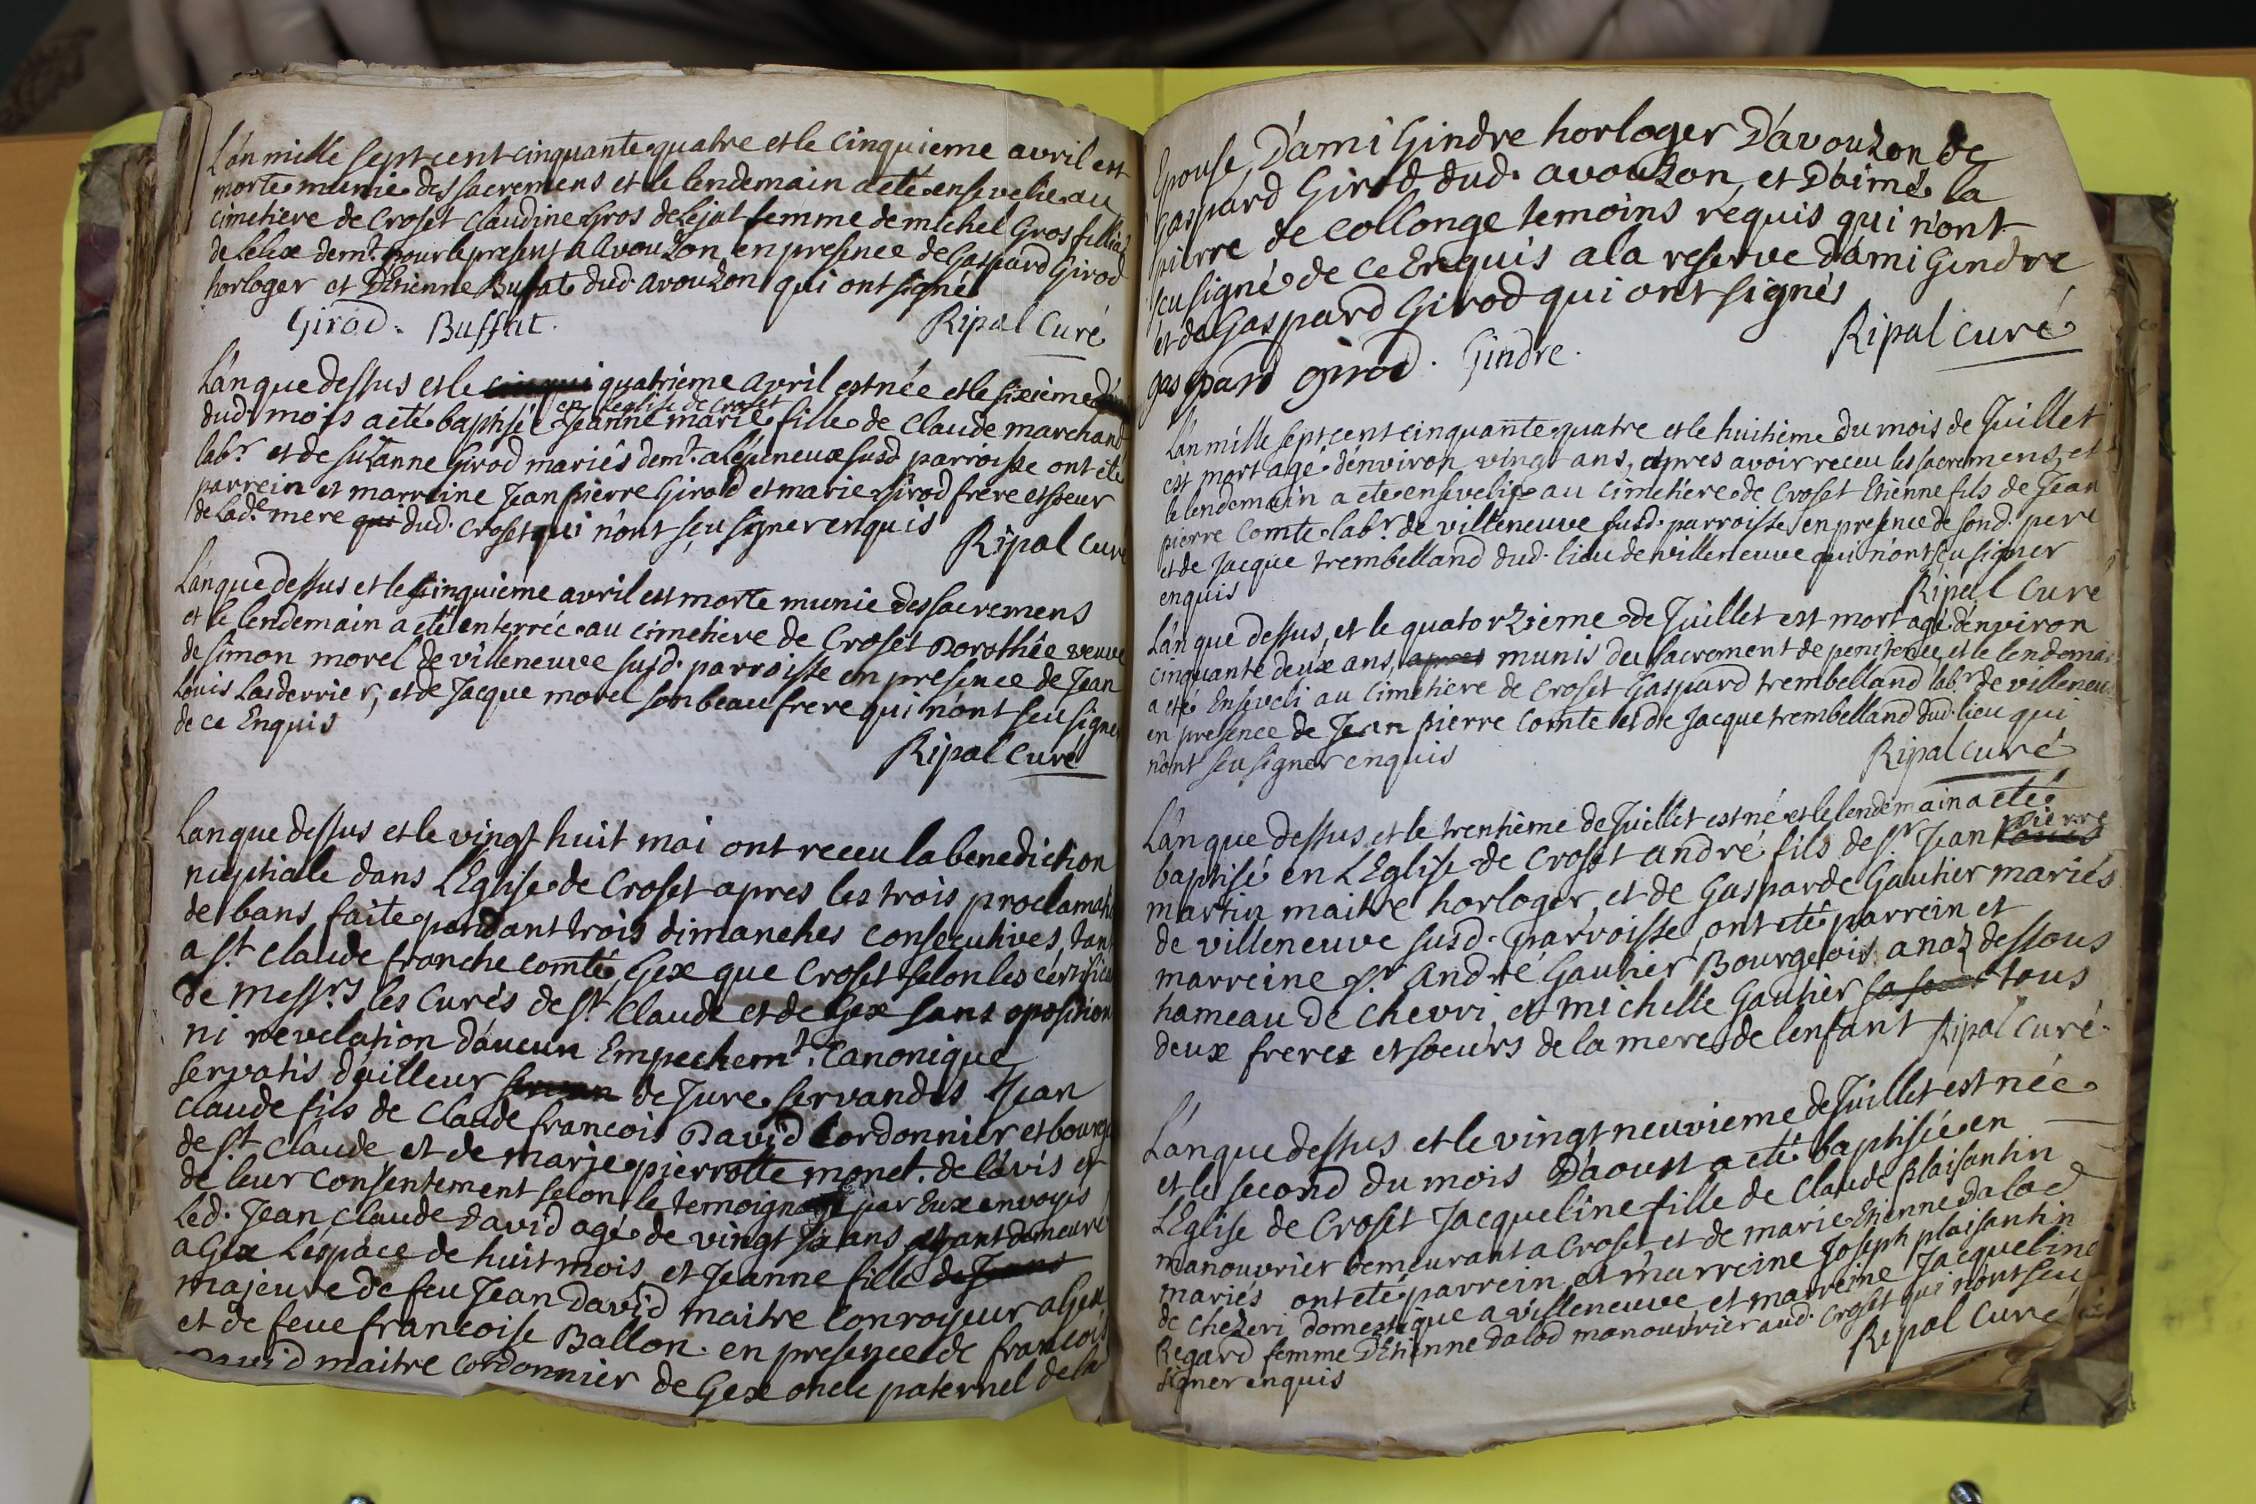 L'an mille sept cent cinquante quatre et le cinquieme avril est
morte munie des sacremens et le lendemain a eté ensevelie au
cimetiere de Croset Claudine Gros de Lejat femme de michel Gros fillia
de Lelex demt. pour le present a Avouzon en presence de Gaspard Girod
horloger et D'Etienne Buffat dud. avouzon qui ont signé
Girod. Buffat. Ripal Curé
L'an que dessus et le quatrieme avril est née et le sixieme
dud. mois a eté baptisée en l'eglise de croset Jeanne marie fille de Claude marchand
labr. et de suzanne Girod mariés demt. a Lépineux susd. parroisse ont été
parrein et marreine Jean pierre Girod et marie Girod frere et soeur
de lade. mere qui dud. Croset qui n'ont sçu signer enquis Ripal Curé
L'an que dessus et le cinquieme avril est morte munie des sacremens
et le lendemain a eté enterrée au cimetiere de Croset Dorothée veuve
de simon morel de villeneuve susd. parroisse en presence de Jean
Louis Lasderrier, et de Jacque morel son beau frere qui n'ont seu signer
de ce Enquis
Ripal Curé
L'an que dessus et le vingt huit mai ont receu la benediction
nuptiale dans L'Eglise de Croset apres les trois proclamati
de bans faite pendant trois dimanches consecutives, tant
a St. Claude franche comté, Gex que Croset selon les certifica
de Messrs. les Curés de St. Claude et de Gex sans oposition
ni revelation d'aucun Empechemt. Canonique
servatis d'ailleur de Jure servandis Jean
Claude fils de Claude francois David Cordonnier et bourge
de St. Claude et de marie pierrotte monet. de l'avis et
de leur consentement selon le temoignage par Eux envoyés
Led. Jean Claude David agé de vingt six ans ayant demeuré
a Gex L'espace de huit mois et Jeanne fille de Jeans
majeure de feu Jean David maitre Conroyeur a Gex
et de feue francoise Ballon. en presence de francois
David maitre cordonnier de Gex oncle paternel de la
Epouse, D'ami Gindre horloger D'avouzon de
Gaspard Girod dud. avouzon, et D'aimé la
pierre de collonge temoins requis qui n'ont
seu signé de ce Enquis a la reserve D'ami Gindre
et de Gaspard Girod qui ont signés
gaspard girod. Gindre. Ripal curé
L'an mille sept cent cinquante quatre et le huitieme du mois de Juillet
est mort agé d'environ vingt ans, apres avoir receu les sacremens, et
le lendemain a eté enseveli au cimetiere de Croset Etienne fils de Jean
pierre Comte labr. de villeneuve susd. parroisse en presence de sond. pere
et de Jacque trembelland dud. lieu de villeneuve qui n'ont seu signer
enquis Ripal Curé
L'an que dessus, et le quatorzieme de Juillet est mort agé d'environ
cinquante deux ans, apres munis du sacrement de penitence, et le lendemai
a eté Enseveli au cimetiere de Croset Gaspard trembelland labr. de villeneu
en presence de Jean pierre Comte et de Jacque trembelland dud. lieu qui
n'ont seu signer enquis
Ripal curé
L'an que dessus et le trentieme de Juillet est né et le lendemain a eté
baptisé en L'Eglise de Croset andré fils de Sr. Jean Pierre
martin maitre horloger, et de Gasparde Gautier mariés
de villeneuve susd. parroisse, ont eté parrein et
marreine Sr. André Gautier Bourgeois a naz dessous
hameau de chevri et michelle Gautier sa soeur tous
deux freres et soeurs de la mere de l'enfant Ripal Curé.
L'an que dessus et le vingt neuvieme de Juillet est née
et le second du mois D'aoust a eté baptisée en
L'Eglise de Croset Jacqueline fille de Claude plaisantin
manouvrier demeurant a Croset et de marie Etienne Dalod
mariés ont eté parrein et marreine Joseph plaisantin
de chezeri domestique a villeneuve et marreine Jacqueline
Regard femme D'Etienne Dalod manouvrier aud. Croset qui n'ont seu
signer enquis Ripal Curé